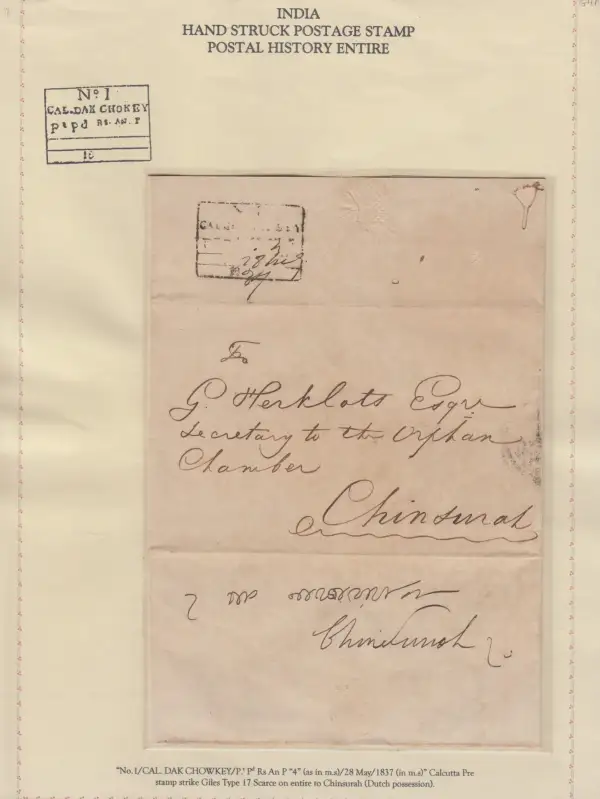 INDIA
HAND STRUCK POSTAGE STAMP
POSTAL HISTORY ENTIRE
No 1
CAL. DAK CHOKEY
pt pd RS. AN. P
18
CAL
To
G. Herklots Esqre
Secretary to the Orphan
Chamber
Chinsurah
Chinsurah
"No. 1/CAL. DAK CHOWKEY/P.t Pd Rs An P "4" (as in m.s)/28 May/1837 (in m.s)" Calcutta Pre
stamp strike Giles Type 17 Scarce on entire to Chinsurah (Dutch possession).